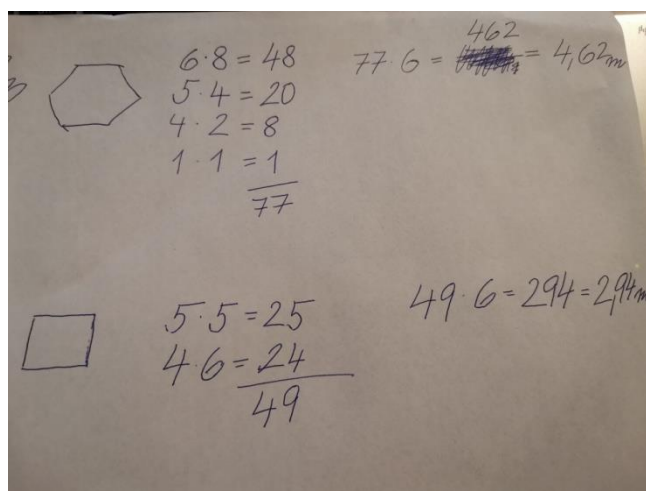 6·8 = 48
5·4 = 20
4·2 = 8
1·1 = 1
77
462
77·6 = = 4,62m
5·5 = 25
4·6 = 24
49
49·6 = 294 = 2,94m